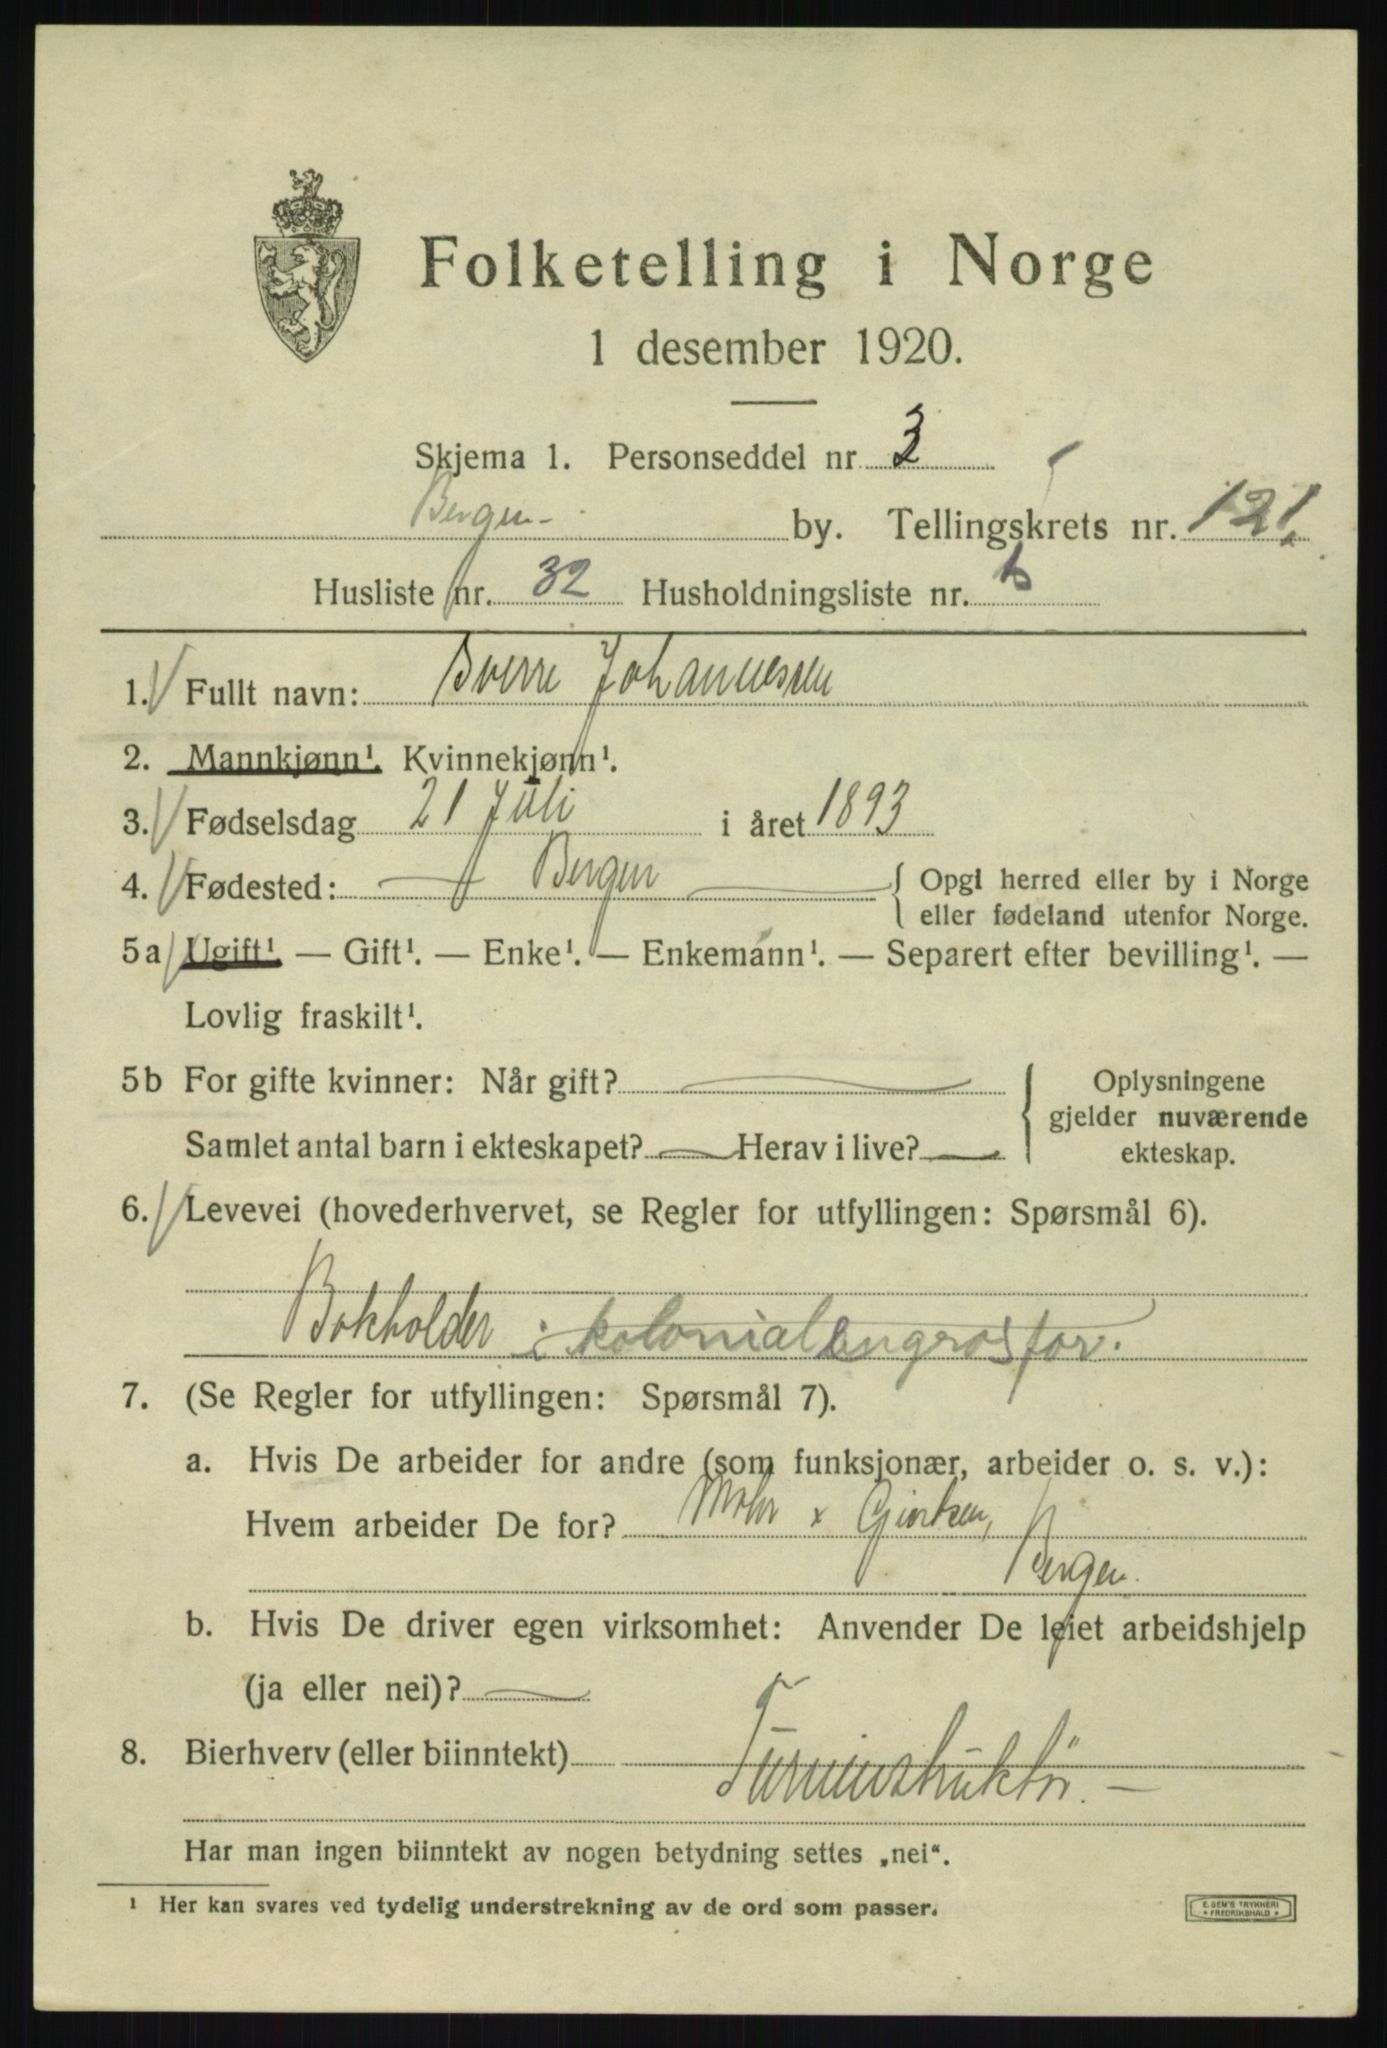 Folketelling i Norge
1 desember 1920.
Skjema 1. Personseddel nr. 3
Bergen by. Tellingskrets nr. 121.
Husliste nr. 32 Husholdningsliste nr. b
1. Fullt navn: Sverre Johannessen
2. Mannkjønn¹. Kvinnekjønn¹.
3. Fødselsdag 21 Juli i året 1893
4. Fødested: Bergen { Opgi herred eller by i Norge
eller fødeland utenfor Norge.
5a Ugift¹. — Gift¹. — Enke¹. — Enkemann¹. — Separert efter bevilling¹. —
Lovlig fraskilt¹.
5b For gifte kvinner: Når gift? { Oplysningene
gjelder nuværende
Samlet antal barn i ekteskapet? Herav i live? ekteskap.
6. Levevei (hovederhvervet, se Regler for utfyllingen: Spørsmål 6).
Bokholder i kolonial engrosfor.
7. (Se Regler for utfyllingen: Spørsmål 7).
a. Hvis De arbeider for andre (som funksjonær, arbeider o. s. v.):
Hvem arbeider De for? Mohr &
Bergen.
b. Hvis De driver egen virksomhet: Anvender De leiet arbeidshjelp
(ja eller nei)?
8. Bierhverv (eller biinntekt) Turninstruktör. —
Har man ingen biinntekt av nogen betydning settes „nei“.
¹ Her kan svares ved tydelig understrekning av de ord som passer.
E. SEM'S TRYKKERI
* FREDRIKSHALD *